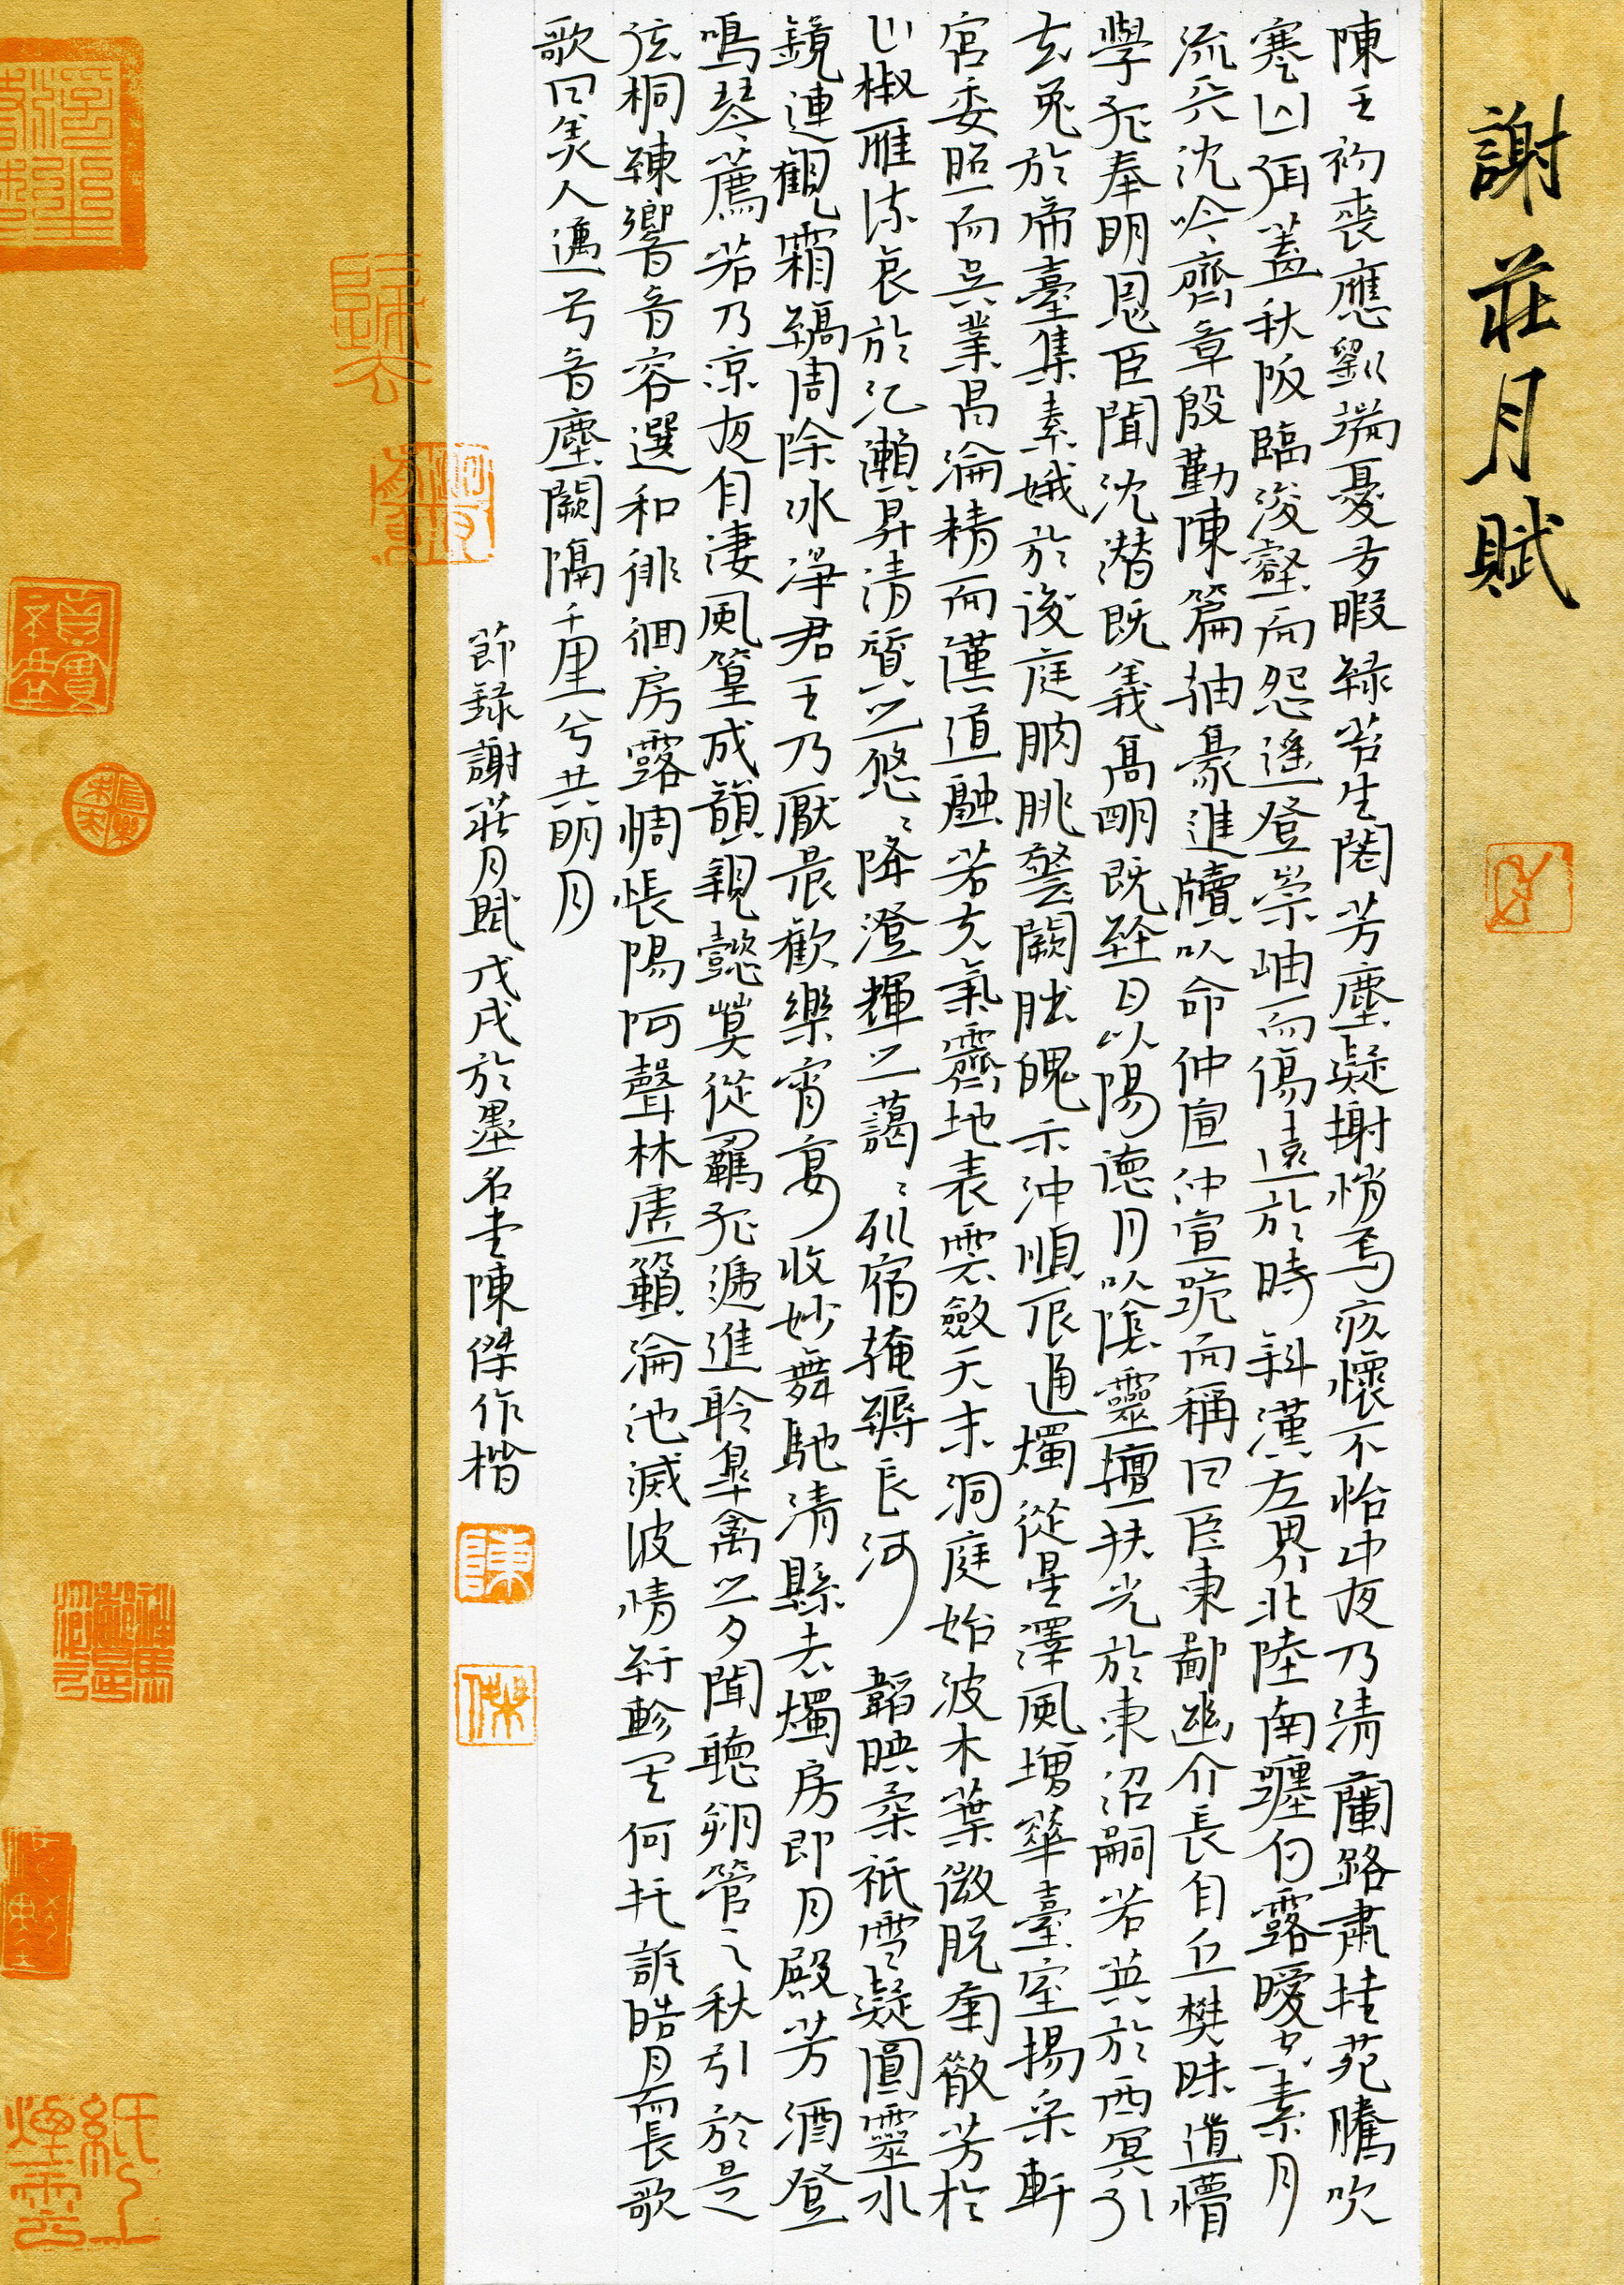 謝莊月賦
陳王初喪應劉端憂多暇綠苔生閣芳塵凝榭悄焉疚懷不怡中夜乃清蘭路肅桂苑騰吹
寒山弭蓋秋阪臨浚壑而怨遙登崇岫而傷遠於時斜漢左界北陸南躔白露曖空素月
流天沈吟齊章殷勤陳篇抽毫進牘以命仲宣仲宣跪而稱曰臣東鄙幽介長自丘樊昧道懵
學孤奉明恩臣聞沈潛既義高明既經日以陽德月以陰靈擅扶光於東沼嗣若英於西冥引
玄兔於帝臺集素娥於後庭朒朓警闕朏魄示沖順辰通燭從星澤風增華臺室揚采軒
宮委照而吳業昌淪精而漢道融若夫氣霽地表雲斂天末洞庭始波木葉微脫菊散芳於
山椒雁流哀於江瀨昇清質之悠悠降澄輝之藹藹列宿掩縟長河韜映柔祇雪凝圓靈水
鏡連觀霜縞周除冰淨君王乃厭晨歡樂宵宴收妙舞馳清縣去燭房即月殿芳酒登
鳴琴薦若乃涼夜自淒風篁成韻親懿莫從羈孤遞進聆皋禽之夕聞聽朔管之秋引於是
弦桐練響音容選和徘徊房露惆悵陽阿聲林虛籟淪池滅波情紆軫其何托訴皓月而長歌
歌曰美人邁兮音塵闕隔千里兮共明月
節錄謝莊月賦戊戌於墨名堂陳傑作楷
陳
傑